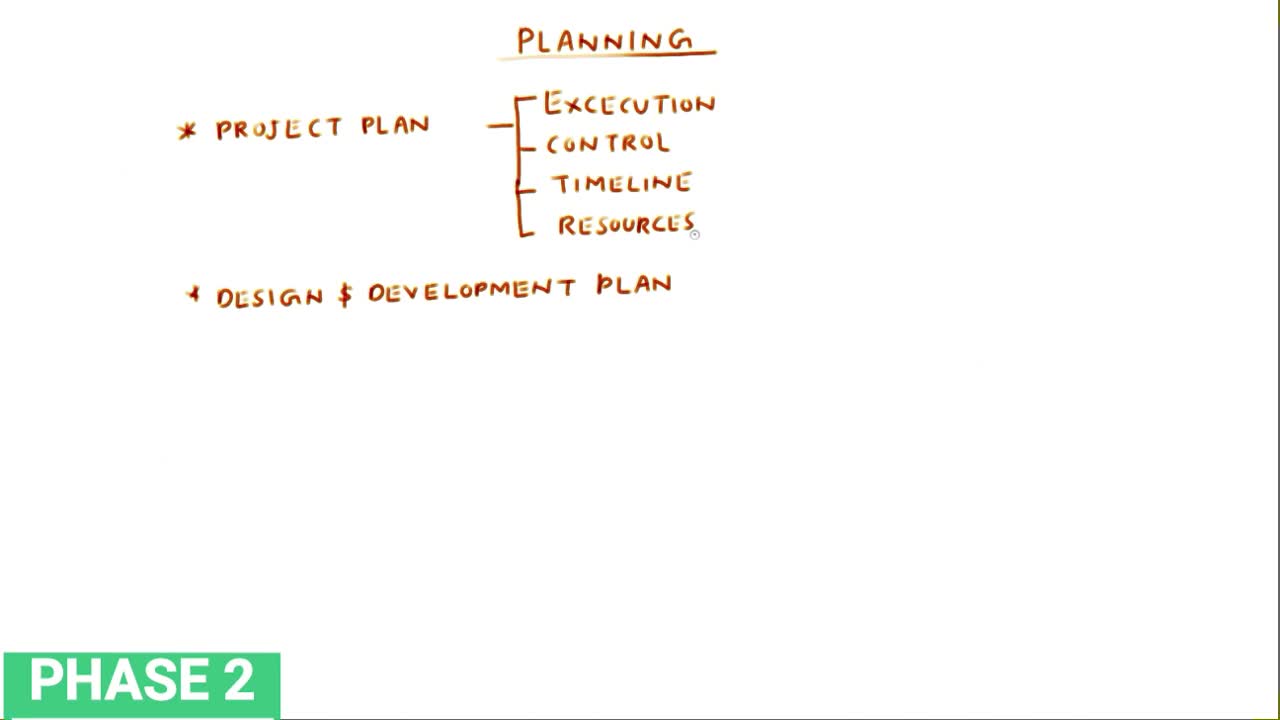 PLANNING
* PROJECT PLAN
EXCECUTION
CONTROL
TIMELINE
RESOURCES
* DESIGN $ DEVELOPMENT PLAN
PHASE 2